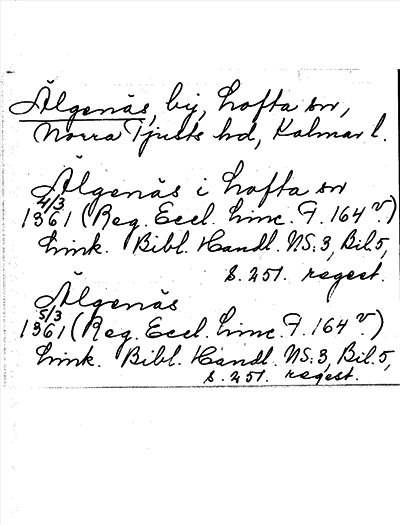 Älgenäs, by, Lofta sn,
Norra Tjusts hd, Kalmar l.
Älgenäs i Lofta sn
4/3
1361 (Reg. Eccl. Linc. F. 164 v.)
Link. Bibl. Handl. NS:3, Bil.5,
S. 251. regest.
Älgenäs
5/3
1361 (Reg. Eccl. Linc. F. 164 v.)
Link. Bibl. Handl. NS:3, Bil.5,
S. 251. regest.